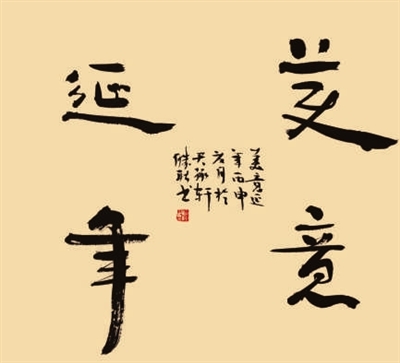 美意
延年
美意延
年丙申
月於
天轩
书